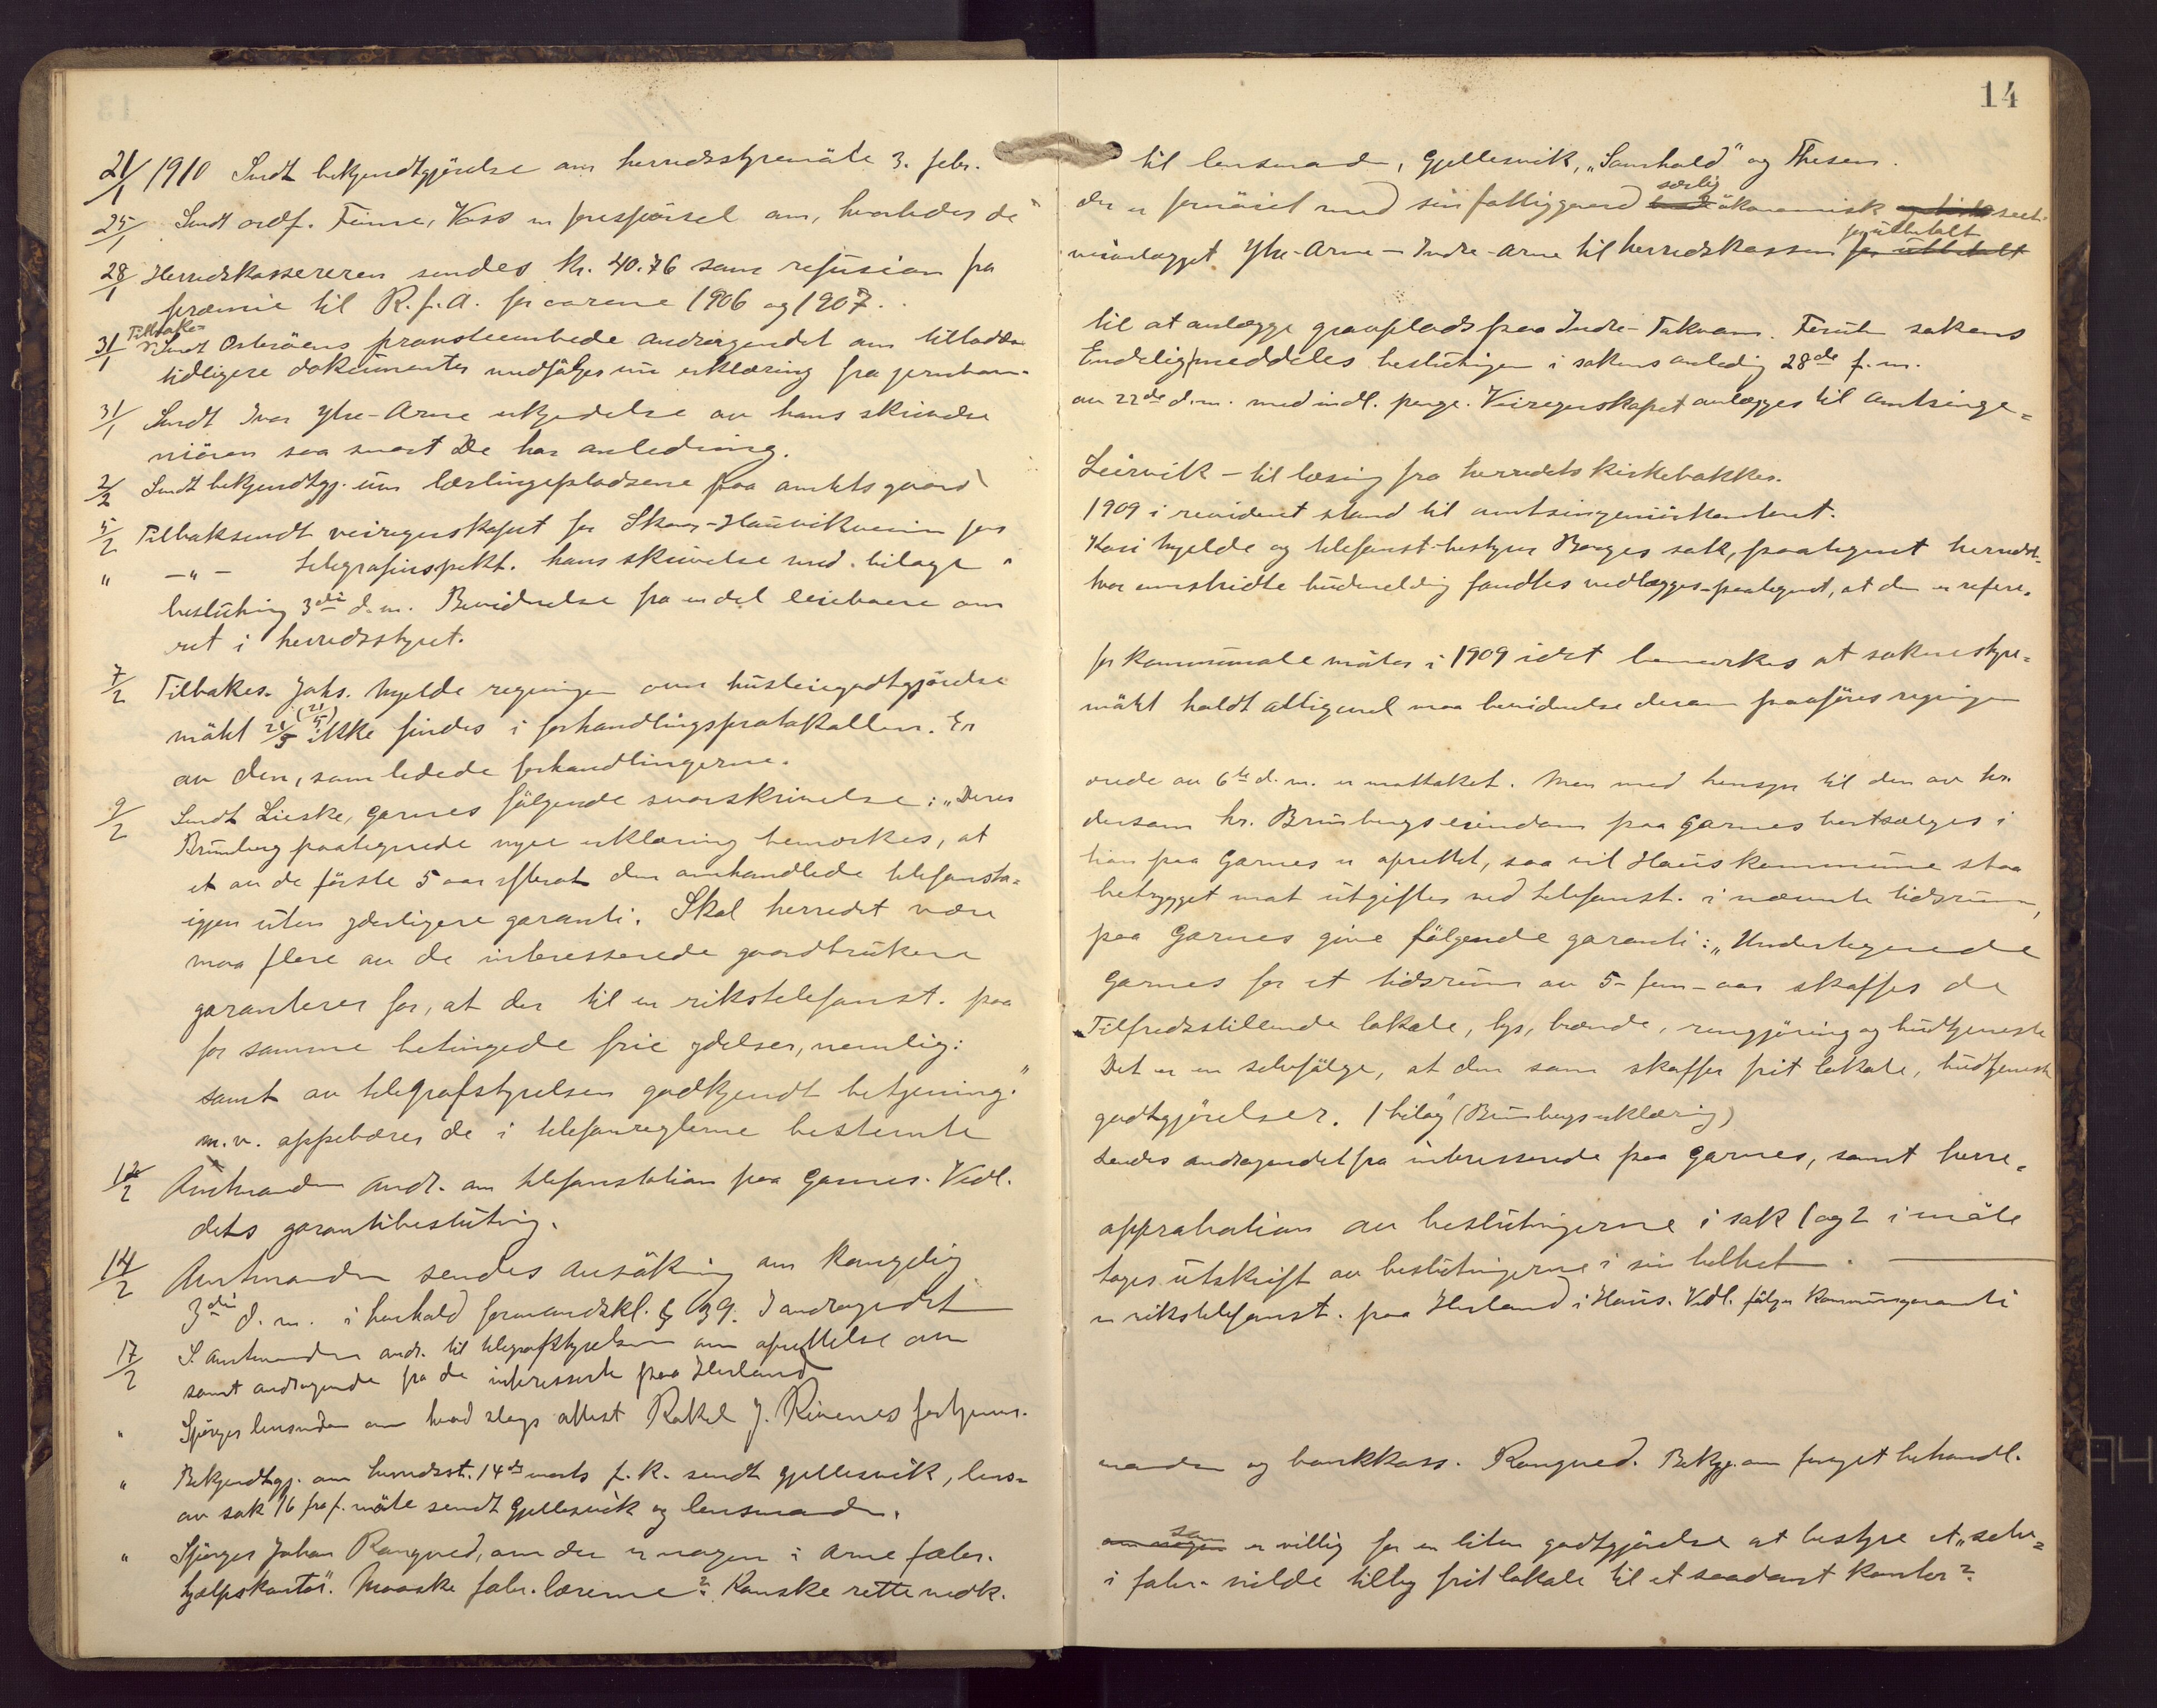 21/1 1910 Sendt bekjendtgjörelse om herredsstyremöte 3. febr. til lensmanden, Gjellesvik, „Samhold" og Thesen.
25/1 Sendt ordf. Finne, Voss en forespörsel om, hvorledes de der er fornöiet med sin fattiggaard særlig ökonomisk seet.
28/1 Herredskassereren sendes kr. 40.76 som refusion fra veianlægget Ytre-Arne – Indre-Arne til herredskassen for utbetalt
præmie til R.f.A. for aarene 1906 og 1907.
31/1 Tilbakesendt Osteröens prousteembede andragendet om tilladelse til at anlægge gravplads paa Indre-Takvam. Foruten sakens
tidligere dokumenter medfölger nu erklæring fra jernban- Endelig meddeles beslutningen i sakens anledig 28de f.m.
31/1 Sendt Ivar Ytre-Arne av hans skrivelse av 22de d.m. med indl. penge. Veiregnskapet anlægges til amtsinge=
niören saa snart De har anledning.
2/2 Sendt bekjendtgj. um lærlingepladsene paa amtets gaard Leirvik – til læsing fra herredets kirkebakker.
5/2 Tilbaksendt veiregnskapet for Skaar-Haukvikveien for 1909 i revideret stand til amtsingeniörkontoret.
" –"– telegrafinspekt. hans skrivelse med bilage i Kari Mjelde og telefonst-bestyrer Borges sak, paategnet herredst.
beslutning 3die d.m. Bevidnelse fra en del leieboere om hvor omstridte budmeldig fandtes vedlægges paategnet, at den er refere-
ret i herredsstyret.
7/2 Tilbakes. Johs. Mjelde regningen over husleiegodtgjörelse for kommunale möter i 1909 idet bemerkes at soknestyre=
mötet 21/5 (21/5) ikke findes i forhandlingsprotokollen. Er mötet holdt alligevel maa bevidnelse derom paaföres regningen
av den, som ledede forhandlingerne.
9/2 Sendt Lieske, Garnes fölgende svarskrivelse: „Deres ærede av 6te d.m. er mottaket. Men med hensyn til den av hr.
Brunberg paategnede nye erklæring bemerkes, at dersom hr. Brunbergs eiendom paa Garnes bortsælges i
et av de förste 5 aar efterat den omhandlede telefonsta= tion paa Garnes er oprettet, saa vil Haus kommune staa
igjen uten yderligere garanti. Skal herredet være betrygget mot utgifter ved telefonst. i nævnte tidsrum,
maa flere av de interesserede gaardbrukere paa Garnes give fölgende garanti: „Undertegnede
garanterer for, at der til en rikstelefonst. paa Garnes for et tidsrum av 5 - fem - aar skaffes de
for samme betingede frie ydelser, nemlig: Tilfredsstillende lokale, lys, brænde, rengjöring og budtjeneste
samt av telegrafstyrelsen godkjendt betjening." Det er en selvfölge, at den som skaffer frit lokale, budtjeneste
m.v. oppebærer de i telefonreglerne bestemte godtgjörelser. 1 bilag (Brunbergs erklæring)
12/2 Amtmanden andr. om telefonstation paa Garnes. Vedl. sendes andragendet fra interesserede paa Garnes, samt herre=
dets garantibeslutning.
14/2 Amtmanden sendes ansökning om kongelig approbation av beslutningerne i sak 1 og 2 i möte
3die d.m. i henhold formandskl. § 39. I andragendet tages utskrift av beslutningerne i sin helhet.
17/2 S. amtmanden andr. til telegrafstyrelsen om oprettelse av en rikstelefonst. paa Herland i Haus. Vedl. fölger kommunegaranti
samt andragende fra de interesserte paa Herland
" Spörges lensmden om hvad slags attest Rakel J. Rivenes fortjener.
" Bekjendtgj. om herredsst. 14de marts f.k. sendt Gjellesvik, lens- manden og bankkass. Rongved. Bekjg. om fornyet behandl.
av sak 16 fra f. möte sendt Gjellesvik og lensmanden.
" Spörges Johan Rongved, om der er nogen i Arne fabr. som er villig for en liten godtgjörelse at bestyre et „selv=
hjælpskontor". Maaske fabr. lærerne? Kanske rette vedk. i fabr. vilde tillæg frit lokale til et saadant kontor?
14